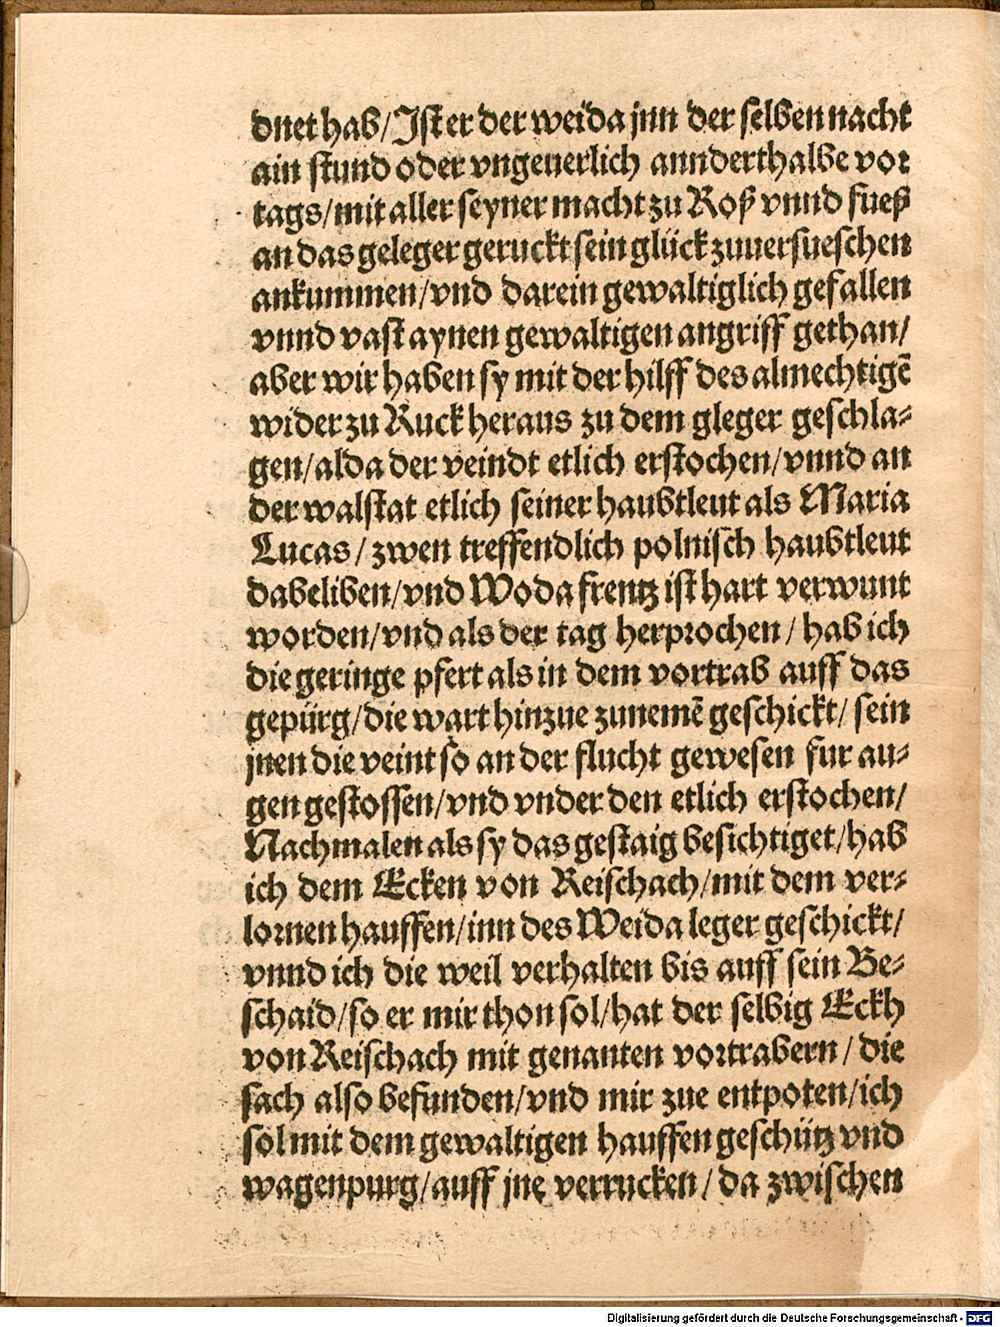 dnet hab/ Ist er der weida jnn der selben nacht
ain stund oder vngeuerlich annderthalbe vor
tags/ mit aller seyner macht zu Roß vnnd fueß
an das geleger geruckt sein glück zuuersueschen
ankummen/ vnd darein gewaltiglich gefallen
vnnd vast aynen gewaltigen angriff gethan/
aber wir haben sy mit der hilff des almechtigē
wider zu Ruck heraus zu dem gleger geschla⸗
gen/ alda der veindt etlich erstochen/ vnnd an
der walstat etlich seiner haubtleut als Maria
Lucas/ zwen treffendlich polnisch haubtleut
dabeliben/ vnd Woda frentz ist hart verwunt
worden/ vnd als der tag herprochen/ hab ich
die geringe pfert als in dem vortrab auff das
gepürg/ die wart hinzue zunemē geschickt/ sein
jnen die veint so an der flucht gewesen fur au⸗
gen gestossen/ vnd vnder den etlich erstochen/
Nachmalen als sy das gestaig besichtiget/ hab
ich dem Ecken von Reischach/ mit dem ver⸗
lornen hauffen/ inn des Weida leger geschickt/
vnnd ich die weil verhalten bis auff sein Be⸗
schaid/ so er mir thon sol/ hat der selbig Eckh
von Reischach mit genanten vortrabern/ die
sach also befunden/ vnd mir zue entpoten/ ich
sol mit dem gewaltigen hauffen geschütz vnd
wagenpurg/ auff jne verrucken/ da zwischen
Digitalisierung gefördert durch die Deutsche Forschungsgemeinschaft - DFG